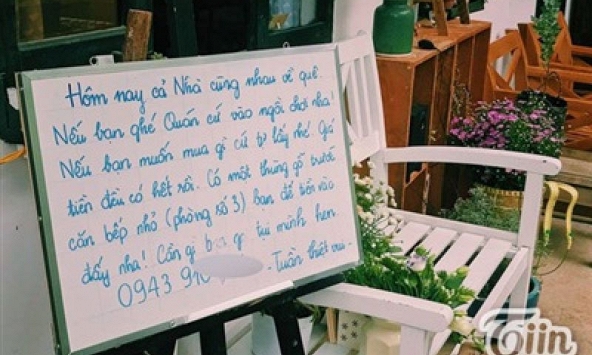 Hôm nay cả Nhà cùng nhau về quê.
Nếu bạn ghé Quán cứ vào ngồi chơi nha!
Nếu bạn muốn mua gì cứ tự lấy nhé Giá
tiền đều có hết rồi. Có một thùng gỗ trước
căn bếp nhỏ (phòng số 3) bạn để tiền vào
đấy nha! Cần gì gọi tụi mình hen.
0943 910 - Tuần thiệt vui.
Tiin